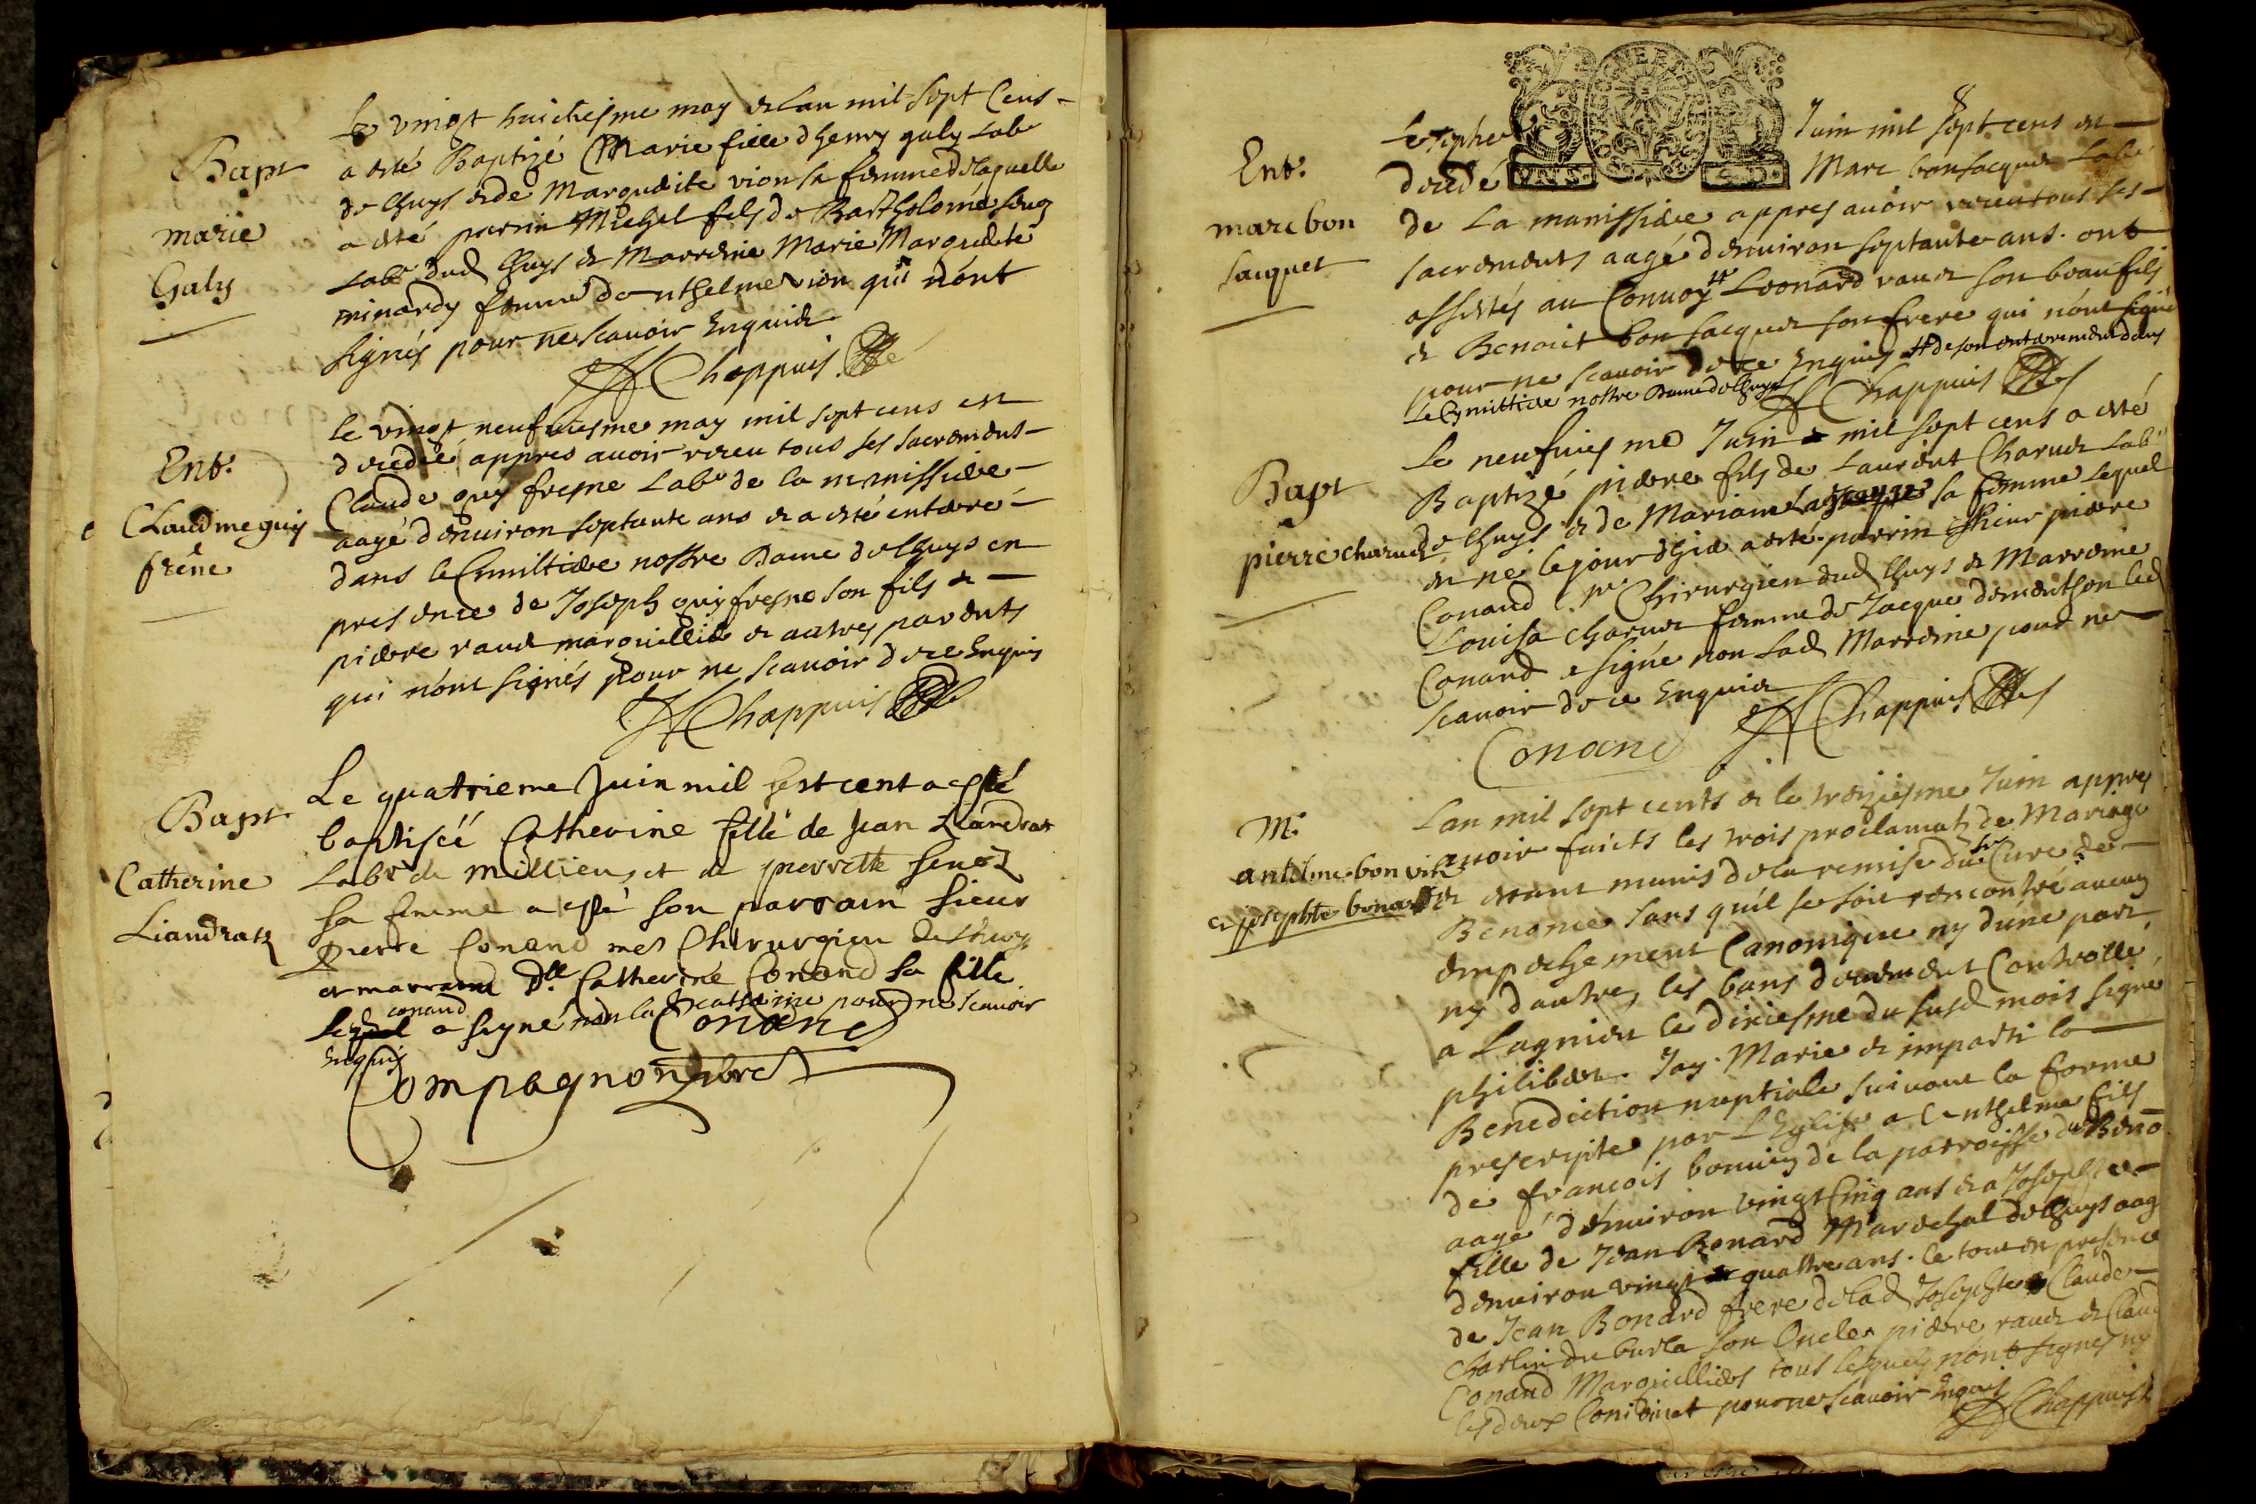 Bapt
marie
Galy
Le vingt huictiesme may de lan mil sept Cens
a esté Baptizé Marie fille dhenry galy Labr
de lhuys & de Margueite vion sa femme de laquelle
a esté parrin Michel fils de Bartholomé
Labr dud lhuys & Marreine Marie Marguite
minardy femme danthelme vion qui nont
signés pour ne scavoir Enquide
Chappuis
Ent.
Claudme guy
frêne
le vingt neufviesme may mil sept cens est
decedé appres avoir receu tous ses sacremens
Claude guy fresne Labr de la manissiere
aagé denviron septante ans & a esté enterré
dans le Cimiltiere nostre Dame de lhuys en
presence de Joseph guy fresne son fils &
pierre raud marguillier & autres parents
qui nont signés pour ne scavoir de ce Enquis
Chappuis
Bapt
Catherine
Liandraz
Le quatrieme Juin mil sept cent a esté
baptiséé Catherine fille de Jean Liandrat
Labr de millieu, et de pierrette
sa femme a esté son parrain sieur
pierre Conand mes Chirurgien de lhuys
et marraine Dlle Catherine Conand sa fille
conand
a signé non lad catherine pour ne scavoir
Enquis
Conand
Compagnon
Ent.
marc bon
Jacquet
Juin mil sept cens est
decedé Marc bonjacquet Labr
de La manissiere appres avoir receu tous ses
sacrements aagé denviron septante ans. ont
assistés au Convoy # Leonard raud son beau fils
& Benoict bon Jacquet son frere qui nont signé
pour ne scavoir de ce Enquis # de son enterrement dans
le Cimittiere nostre Dame de lhuys
Chappuis
Bapt
pierre charvet
Le neufviesme Juin mil sept cens a esté
Baptizé pierre fils de Laurent Charvet Labr
de lhuys & de Mariane sa femme lequel
est né le jour dhier a esté parrin sieur pierre
Conand me Chirurgien dud lhuys & Marreine
Louisa charvet femme de Jacque demontson led
Conand a signé non lad Marreine pour ne
scavoir de ce Enquide
Conand
Chappuis
M.
antelme bon vin
et josephte bonard
Lan mil sept cents & le treiziesme Juin appres
avoir faicts les trois proclamats de Mariage
& etant munis de la remise du sr Cure de
Benonce sans quil se soit rencontré aucun
empechement Canonique ny dune part
ny dautre, les bans deuement Controllé
a Lagnieu le dixiesme du susd mois signé
philibert. Jay Marie & imparti la
Benediction nuptiale suivant la forme
prescripte par LEglise a Anthelme fils
de francois bonvin de la parroisse de Beno
aagé denviron vingt Cinq ans & a Josephte
fille de Jean Bonard Marechal de lhuys aag
denviron vingt quattre ans. le tout en presence
de Jean Bonard frere de lad Josephte Claude
Charlin du burla son Oncle pierre raud & Claud
Conand Marguilliers tous lesquels nont signes ny
les deux Conioinct pour ne scavoir Enquis
Chappuis